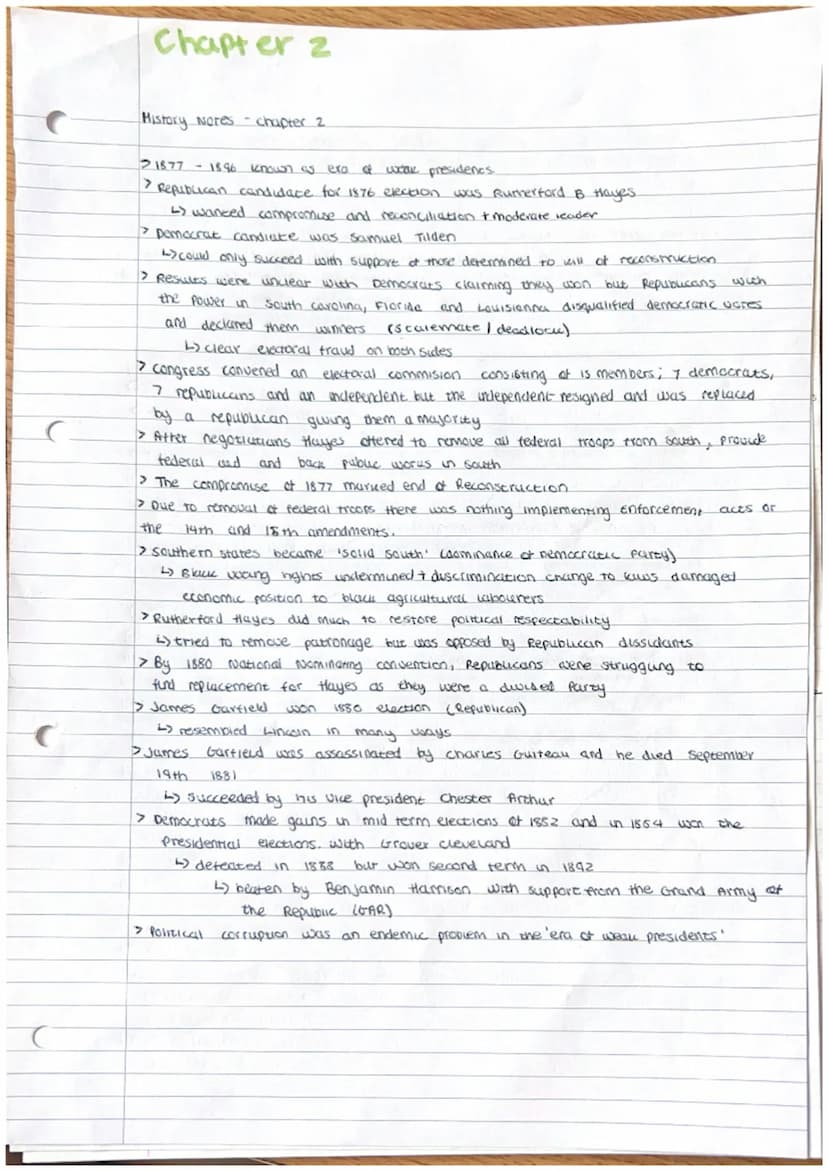 Chapter 2
History Notes - chapter 2
> 1877 - 1896 known as era of weak presidents
> Republican candidate for 1876 election was Rutherford B Hayes
↳ wanted compromise and reconciliation + moderate leader
> Democrat candiate was Samuel Tilden
↳ could only succeed with support of those determined to kill of reconstruction
> Results were unclear with Democrats claiming they won but Republicans with
the power in South Carolina, Floride and Louisianna disqualified democratic votes
and declared them winners (stalemate / deadlock)
↳ clear electoral fraud on both sides
> Congress convened an electoral commision consisting of 15 members; 7 democrats,
7 republicans and an independent but the independent resigned and was replaced
by a republican giving them a majority
> After negotiations Hayes offered to remove all federal troops from South, provide
federal aid and back public works in south
> The compromise of 1877 marked end of Reconstruction
> Due to removal of federal troops there was nothing implementing enforcement acts or
the 14th and 15th amendments.
> Southern states became 'solid south' (dominance of Democratic Party)
↳ Black voting rights undermined + discrimination change to laws damaged
economic position to black agricultural labourers
> Rutherford Hayes did much to restore political respectability
↳ tried to remove patronage but was opposed by Republican dissidants
> By 1880 National Nominating convention, Republicans were struggling to
find replacement for Hayes as they were a divided Party
> James Garfield won 1880 election (Republican)
↳ resembled Lincoln in many ways
> James Garfield was assassinated by Charles Guiteau and he died September
19th 1881
↳ Succeeded by his vice president Chester Arthur
> Democrats made gains in mid term elections of 1882 and in 1884 won the
Presidential elections. with Grover Cleveland
↳ defeated in 1888 but won second term in 1892
↳ beaten by Benjamin Harrison with support from the Grand Army of
the Republic (GAR)
> Political corruption was an endemic problem in the 'era of weak presidents'